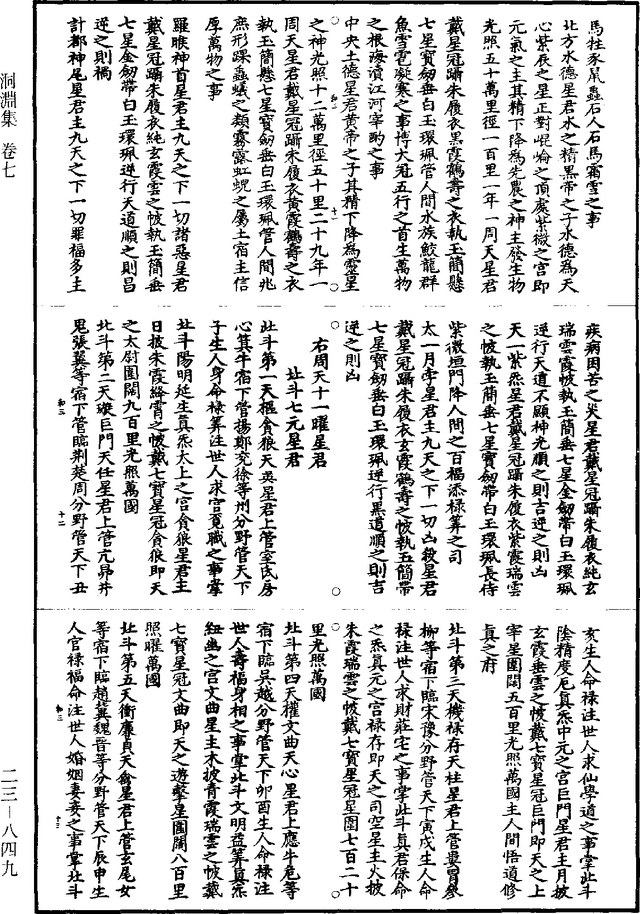 洞淵集 卷七
馬牲豕鼠蟲石人石馬霜雪之事
北方水德星君水之精黑帝之子水德為天
心紫辰之星正對崐崘之頂處紫微之宮即
元氣之主其精下降為先農之神主發生物
光照五十萬里徑一百里一年一周天星君
戴星冠躡朱履衣黑霞鶴壽之衣執玉簡懸
七星寶劒垂白玉環珮管人間水族鮫龍群
魚雪雹凝寒之事博大冠五行之首生萬物
之根海瀆江河宰酌之事
中央土德星君黃帝之子其精下降為靈星
之神光照十二萬里徑五十里二十九年一
周天星君戴星冠躡朱履衣黃霞鶴壽之衣
執玉簡懸七星寶劒垂白玉環珮管人間兆
庶形蹂蟲蟻之類霧露虹蜺之屬土宿主信
厚萬物之事
羅睺神首星君主九天之下一切諸惡星君
戴星冠躡朱履衣純玄霞雲之帔執玉簡垂
七星金劒帶白玉環珮逆行天道順之則昌
逆之則禍
計都神尾星君主九天之下一切罪福多主
疾病困苦之災星君戴星冠躡朱履衣純玄
瑞雲霞帔執玉簡垂七星金劒帶白玉環珮
逆行天道不顯神光順之則吉逆之則凶
天一紫炁星君戴星冠躡朱履衣紫霞瑞雲
之帔執玉簡垂七星寶劒帶白玉環珮長侍
紫微垣門降人間之百福添祿筭之司
太一月孛星君主九天之下一切凶殺星君
戴星冠躡朱履衣玄霞鶴壽之帔執玉簡帶
七星寶劒垂白玉環珮逆行黑道順之則吉
逆之則凶
右周天十一曜星君
北斗七元星君
北斗第一天樞貪狼天英星君上管室氐房
心箕牛宿下管揚鄭兗徐等州分野管天下
子生人身命祿筭注世人求官覓職之事掌
北斗陽明延生真炁太上之宮貪狼星君主
日披朱霞絳霄之帔戴七寶星冠貪狼即天
之太尉圍闊九百里光照萬國
北斗第二天璇巨門天任星君上管亢昴井
鬼張翼等宿下管臨荆楚周分野管天下丑
亥生人命祿注世人求仙學道之事掌北斗
陰精度厄真炁中元之宮巨門星君主月披
玄霞垂雲之帔戴七寶星冠巨門即天之上
宰星圍闊五百里光照萬國主人間悟道修
真之府
北斗第三天機祿存天柱星君上管婁胃參
柳等宿下臨宋豫分野管天下寅戌生人命
祿注世人求財莊宅之事掌北斗真君保命
之炁真元之宮祿存即天之司空星主火披
朱霞瑞雲之帔戴七寶星冠星圍七百二十
里光照萬國
北斗第四天權文曲天心星君上應牛危等
宿下臨吳越分野管天下卯酉生人命祿注
世人壽福身相之事掌北斗文明益筭真炁
紐幽之宮文曲星主木披青霞瑞雲之帔戴
七寶星冠文曲即天之遊擊星圍闊八百里
照曜萬國
北斗第五天衡廉貞天禽星君上管玄尾女
等宿下臨趙冀魏晉等分野管天下辰申生
人官祿福命注世人婚姻妻妾之事掌北斗
二三—八四九